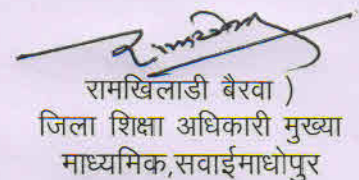 रामखिलाडी बैरवा )
जिला शिक्षा अधिकारी मुख्या
माध्यमिक,सवाईमाधोपुर